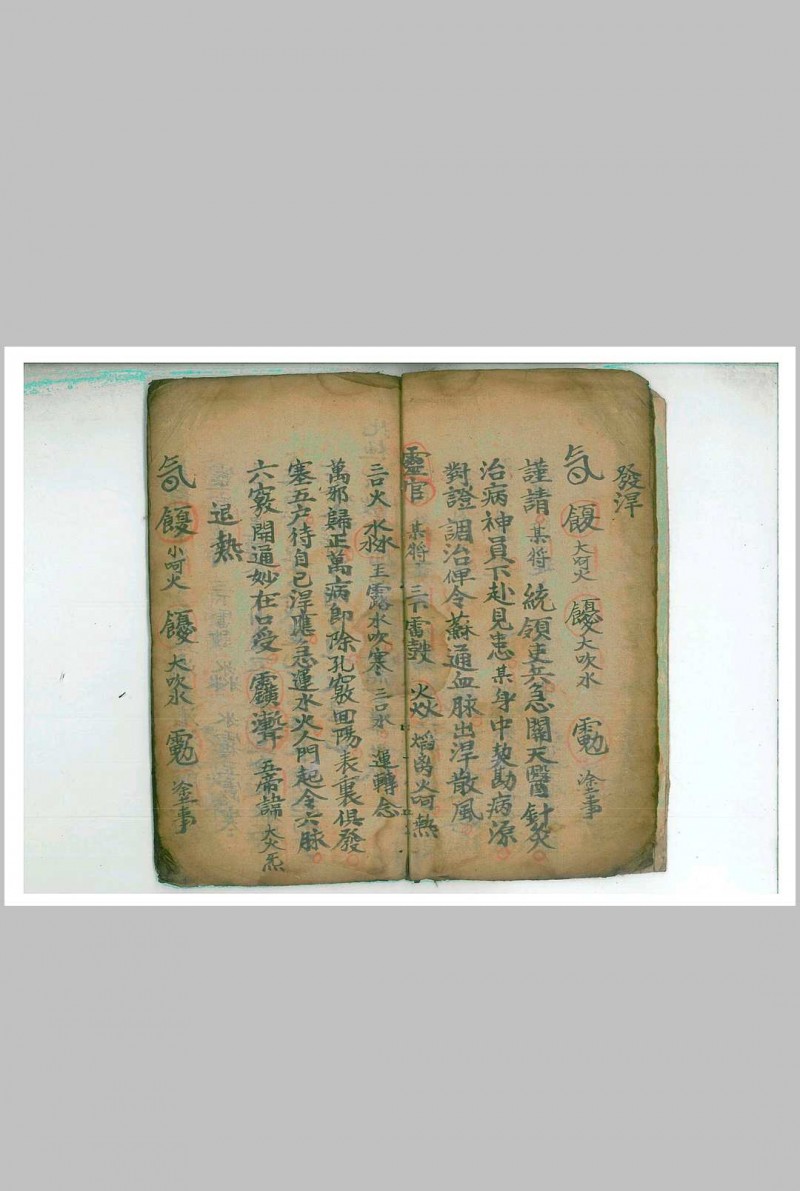 發浑
大呵火 大吹水 塗事
謹請某將統領吏兵急關天醫針灸
治病神員下赴見患某身中契勘病源
對證調治俾令蘇通血脉出浑散風
靈官某將三下雷鼓火焱熖离火呵熱
三口火水沝淼壬露水吹寒三口水運轉念
萬邪歸正萬病即除孔竅回陽表裏俱發
塞五户待自己浑應急運水火人門起令六脉
六竅開通妙在口受五帝諱大火炁
退熱
小呵火 大吹水 塗事